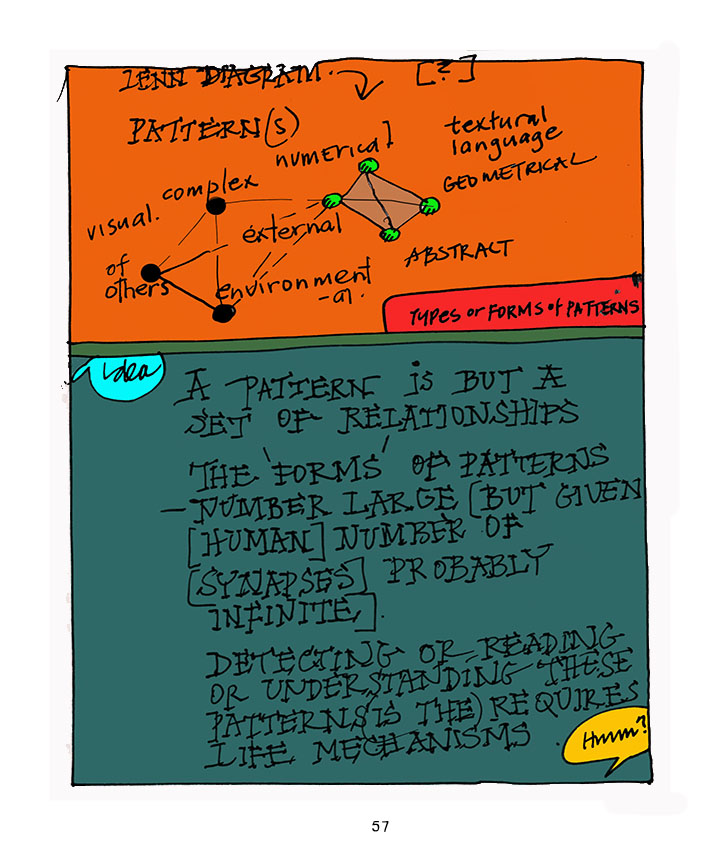 VENN DIAGRAM. [?]
PATTERN(S)
numerical
textural
language
GEOMETRICAL
complex
visual.
external
ABSTRACT
of
others
environment
-al.
TYPES or FORMS of PATTERNS
idea
A PATTERN is BUT A
SET OF RELATIONSHIPS
THE 'FORMS' OF PATTERNS
- NUMBER LARGE [BUT GIVEN
[HUMAN] NUMBER OF
[SYNAPSES] PROBABLY
INFINITE].
DETECTING OR READING
OR UNDERSTANDING THESE
PATTERNS (IS THE) REQUIRES
LIFE MECHANISMS.
Hmm?
57